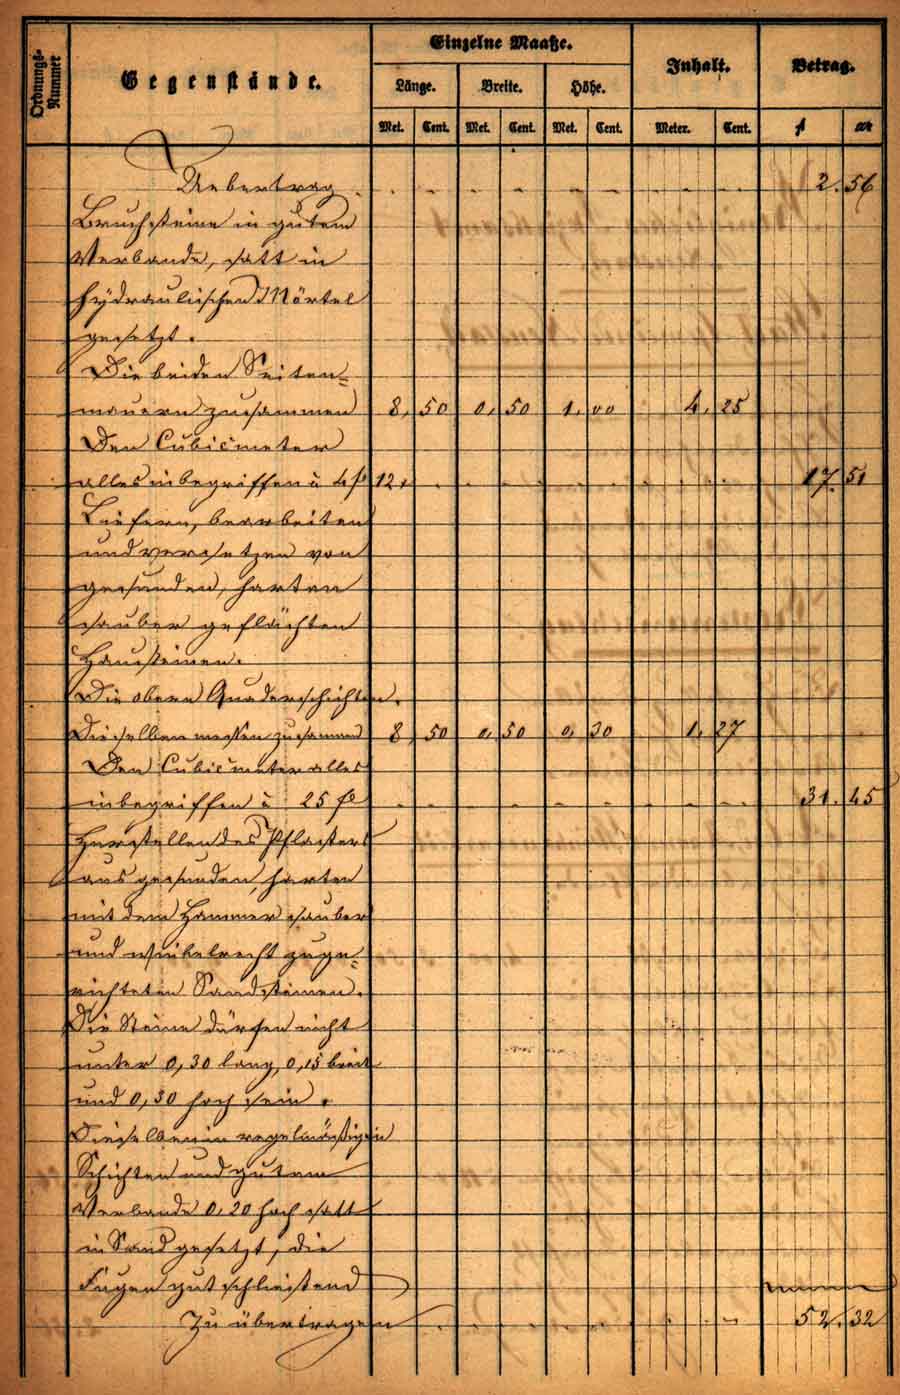 Ordnungs-Nummer
Gegenstände.
Einzelne Maaße.
Inhalt.
Betrag.
Länge. Breite. Höhe.
Met. Cent. Met. Cent. Met. Cent. Meter. Cent. f xr
Uebertrag 2. 56
Bruchsteine in gutem
Verbande, satt in
hydraulischen Mörtel
gesetzt.
Die beiden Seiten=
mauern zusammen 8, 50 0, 50 1, 00 4, 25
Den Cubicmeter
alles inbegriffen à 4 fl 12, 17. 51
Liefern, bearbeiten
und versetzen von
gesunden, harten
sauber geflächten
Hausteinen.
Die obern Quaderschichten.
Dieselben messen zusammen 8, 50 0, 50 0, 30 1, 27
Den Cubicmeter alles
inbegriffen à 25 fl 31. 45
Herstellen des Pflasters
aus gesunden, harten
mit dem Hammer sauber
und winkelrecht zuge=
richteten Sandsteinen.
Die Steine dürfen nicht
unter 0,30 lang, 0,15 breit
und 0,30 hoch sein.
Dieselben in regelmäßigen
Schichten und gutem
Verbande 0,20 hoch satt
in Sand gesetzt, die
Fugen gut schließend
Zu übertragen 52. 32